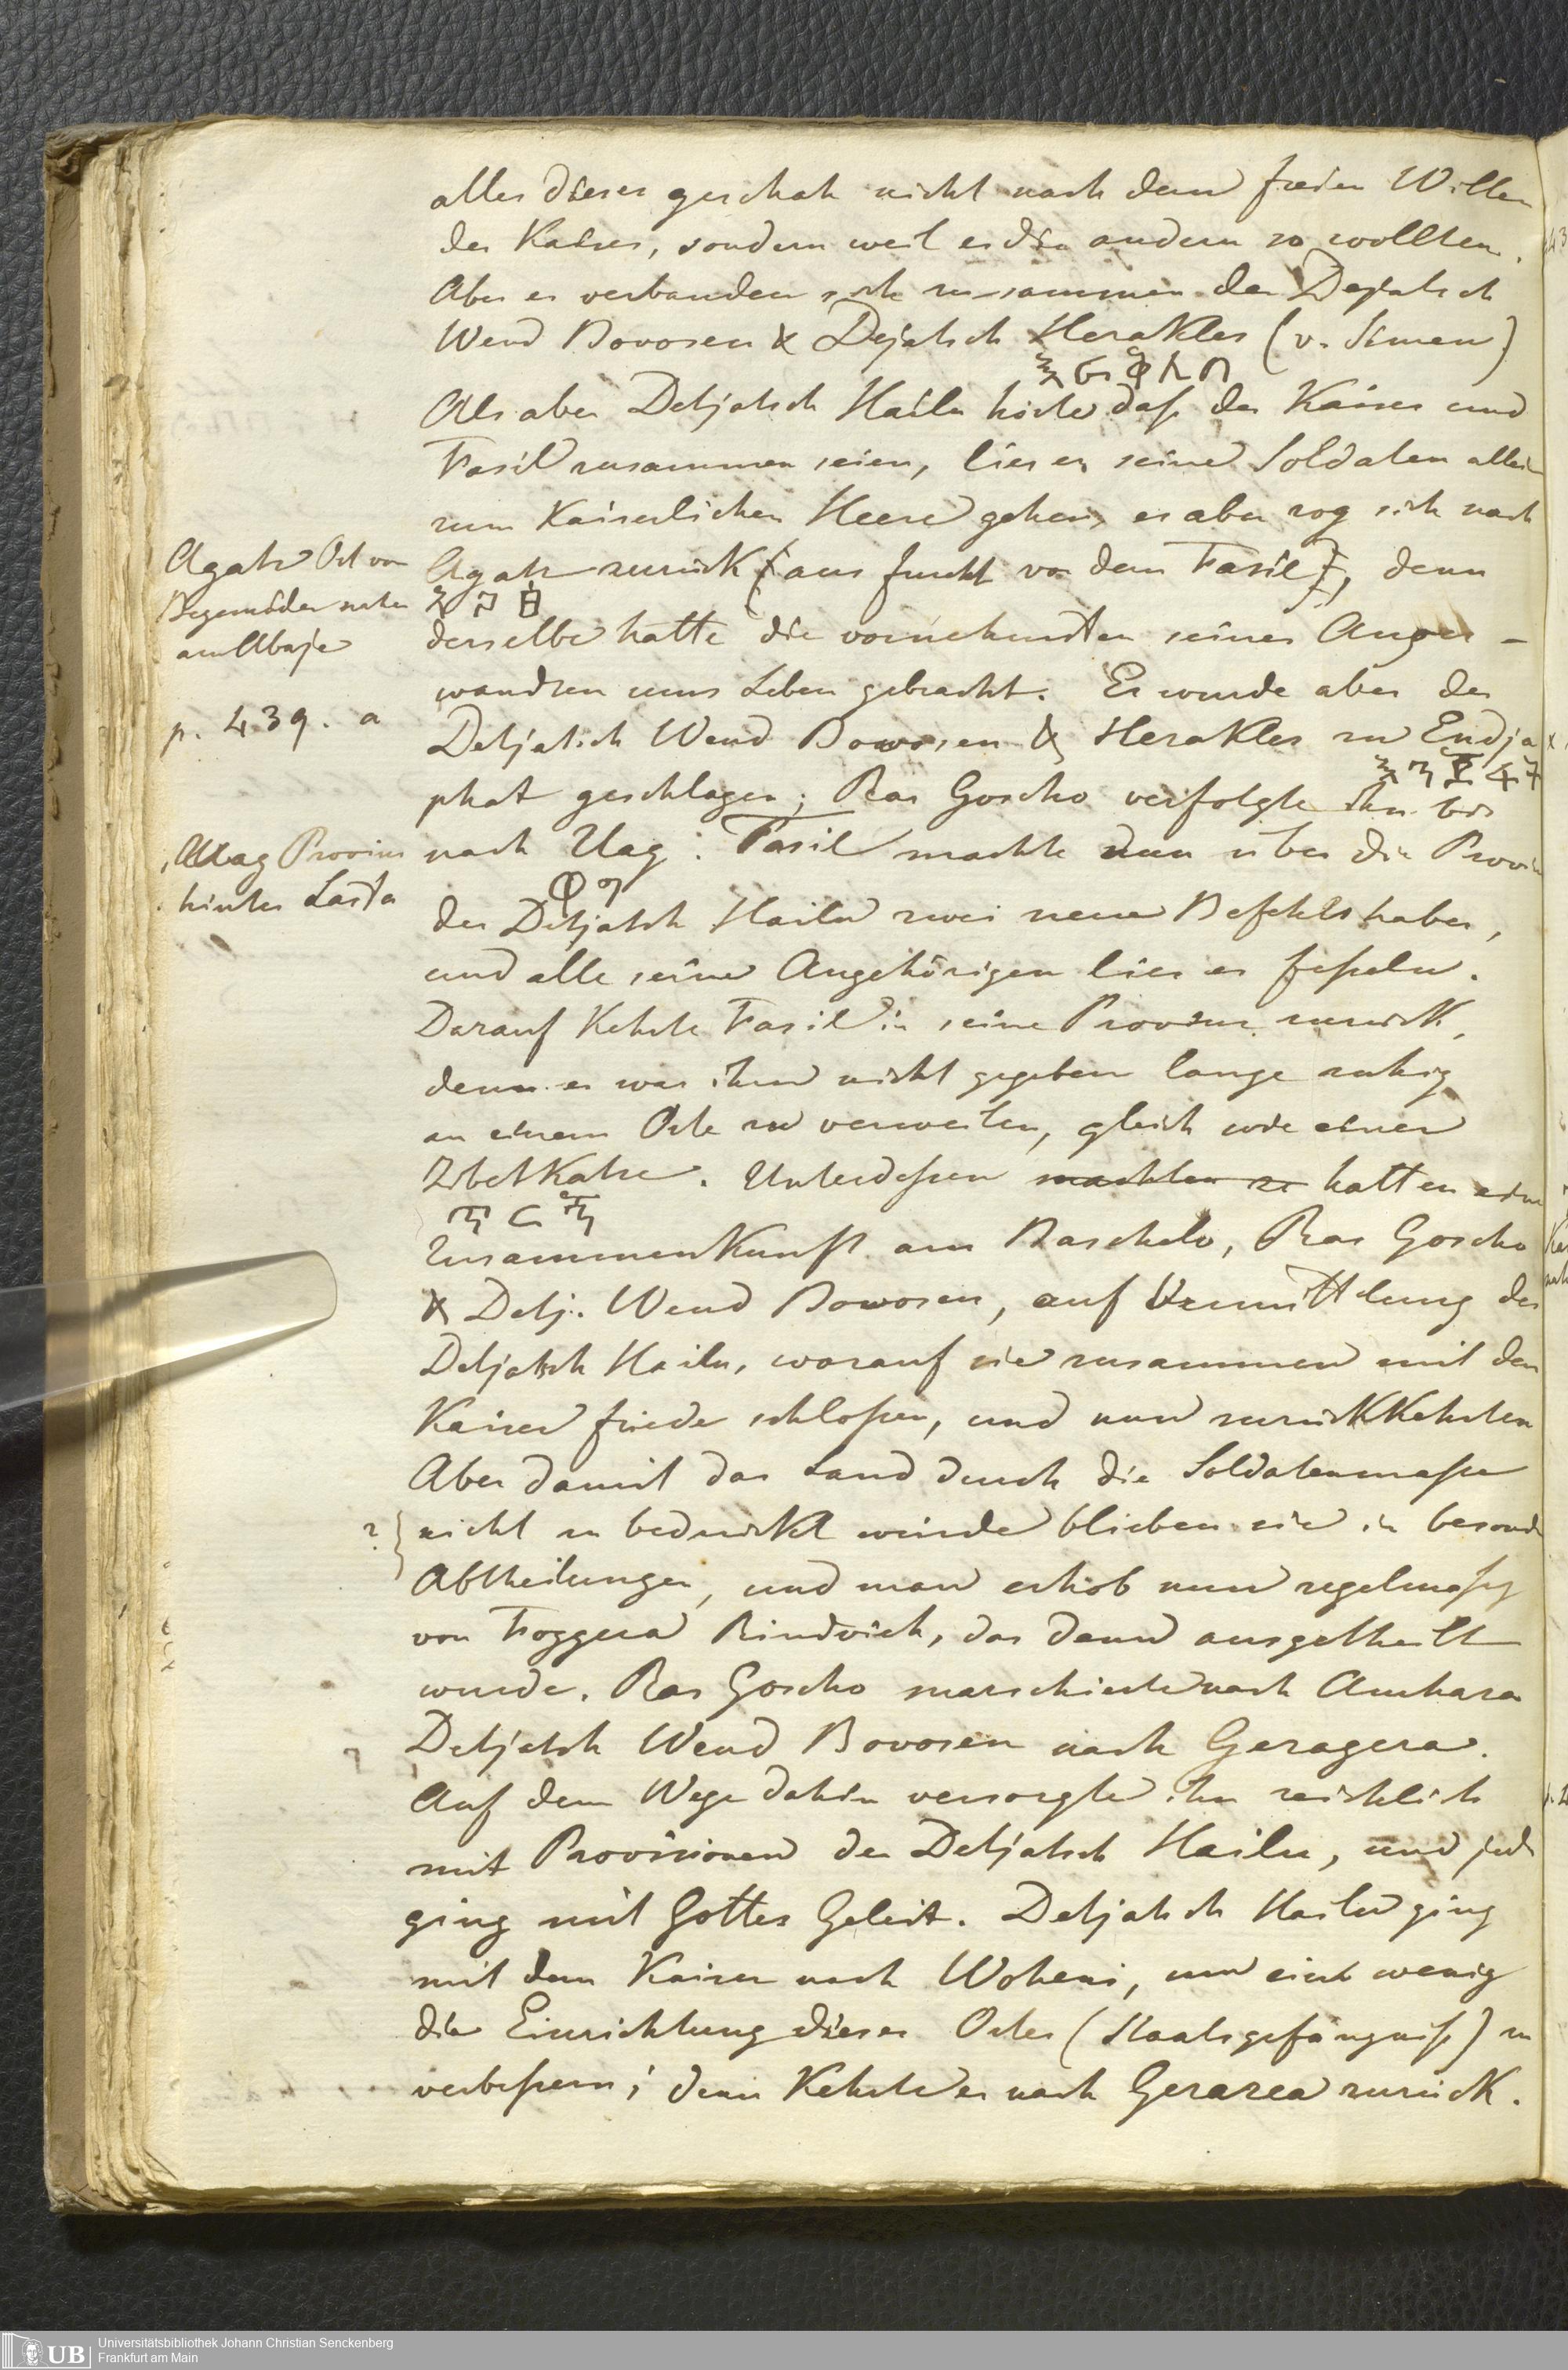 alles dieses geschah nicht nach dem freien Willen
des Kaisers, sondern weil es die andern so wollten.
Aber es verbanden sich zusammen der Dejatsch
Wend Bovosen & Dejatsch Herakles (v. Simen)
Als aber Detjatsch Hailu hörte daß der Kaiser und
Fasil zusammen seien, lies er seine Soldaten allein
zum Kaiserlichen Heere gehen, er aber zog sich nach
Agatz zurück (aus furcht vor dem Fasil), denn
derselbe hatte die vornehmsten seiner Anver-
wandten ums Leben gebracht. Es wurde aber der
Detjatsch Wend Bowosen & Herakles zu Endja
phat geschlagen; Ras Goscho verfolgte ihn bis
nach Uag. Fasil machte nun über die Provin
des Detjatsch Hailu zwei neue Befehlshaber,
und alle seine Angehörigen lies er feßeln.
Darauf kehrte Fasil in seine Provinz zurück,
denn es war ihm nicht gegeben lange ruhig
an einem Orte zu verweilen, gleich wie einer
Zibetkatze. Unterdeßen machten zu hatten eine
Zusammenkunft am Baschelo, Ras Goscho
& Detj. Wend Bowosen, auf Vermittlung des
Detjatsch Hailu, worauf sie zusammen mit dem
Kaiser friede schloßen, und nun zurückkehrten
Aber damit das Land durch die Soldatenmaße
nicht zu bedrückt würde blieben sie in besond
Abtheilungen, und man erhob nun regelmäßig
von Foggera Rindvieh, das dann ausgetheilt
wurde. Ras Goscho marschierte nach Amhara
Detjatsch Wend Bovosen nach Geragera.
Auf dem Wege dahin versorgte ihn reichlich
mit Provisionen der Detjatsch Hailu, und jeder
ging mit Gottes Geleit. Detjatsch Hailu ging
mit dem Kaiser nach Woheni, um ein wenig
die Einrichtung dieses Ortes (Staatsgefängniß) zu
verbeßern; dann kehrte er nach Gerarea zurück.
Agatz Ort von
Begemöder
am Abaje
p. 439. a
Uag Provinz
hinter Lasta
?
UB Universitätsbibliothek Johann Christian Senckenberg
Frankfurt am Main